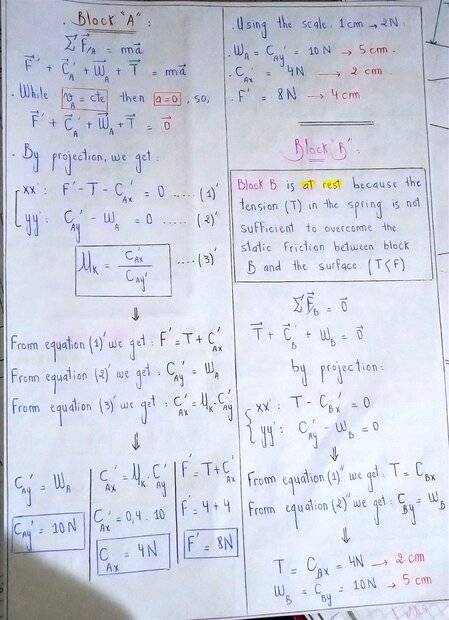 Block "A" :
ΣF⃗/A = ma⃗
F⃗' + C⃗'A + W⃗A + T⃗ = ma⃗
. While v⃗A = cte then a=0, so,
F⃗' + C⃗'A + W⃗A + T⃗ = 0⃗
. By projection, we get:
xx: F' - T - C'Ax = 0 ..... (1)'
yy: C'Ay - WA = 0 ..... (2)'
μK = C'Ax / C'Ay' ....(3)'
⇓
From equation (1)' we get: F' = T + C'Ax
From equation (2)' we get: C'Ay = WA
From equation (3)' we get: C'Ax = μK . C'Ay
⇓
CAy' = WA
CAy' = 10N
CAx' = μK . CAy'
CAx' = 0,4 . 10
CAx = 4N
F' = T + CAx'
F' = 4 + 4
F' = 8N
. Using the scale: 1cm → 2N.
. WA = CAy' = 10N → 5 cm.
. CAx' = 4N → 2 cm.
. F' = 8N → 4 cm
Block "B".
Block B is at rest because the
tension (T) in the spring is not
sufficient to overcome the
static friction between block
B and the surface (T<F)
ΣF⃗B = 0⃗
T⃗ + C⃗'B + W⃗B = 0⃗
by projection:
xx': T - CBx' = 0
yy': CAy' - WB = 0
⇓
From equation (1)" we get: T = CBx
From equation (2)" we get: CBy = WB
⇓
T = CBx = 4N → 2 cm
WB = CBy = 10N → 5 cm